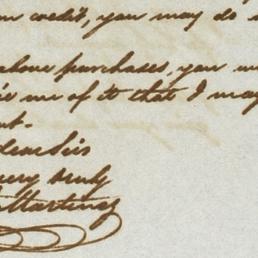 credit, you may do
above purchases, you
me of it that I may
Dear Sir
very truly
Martinez